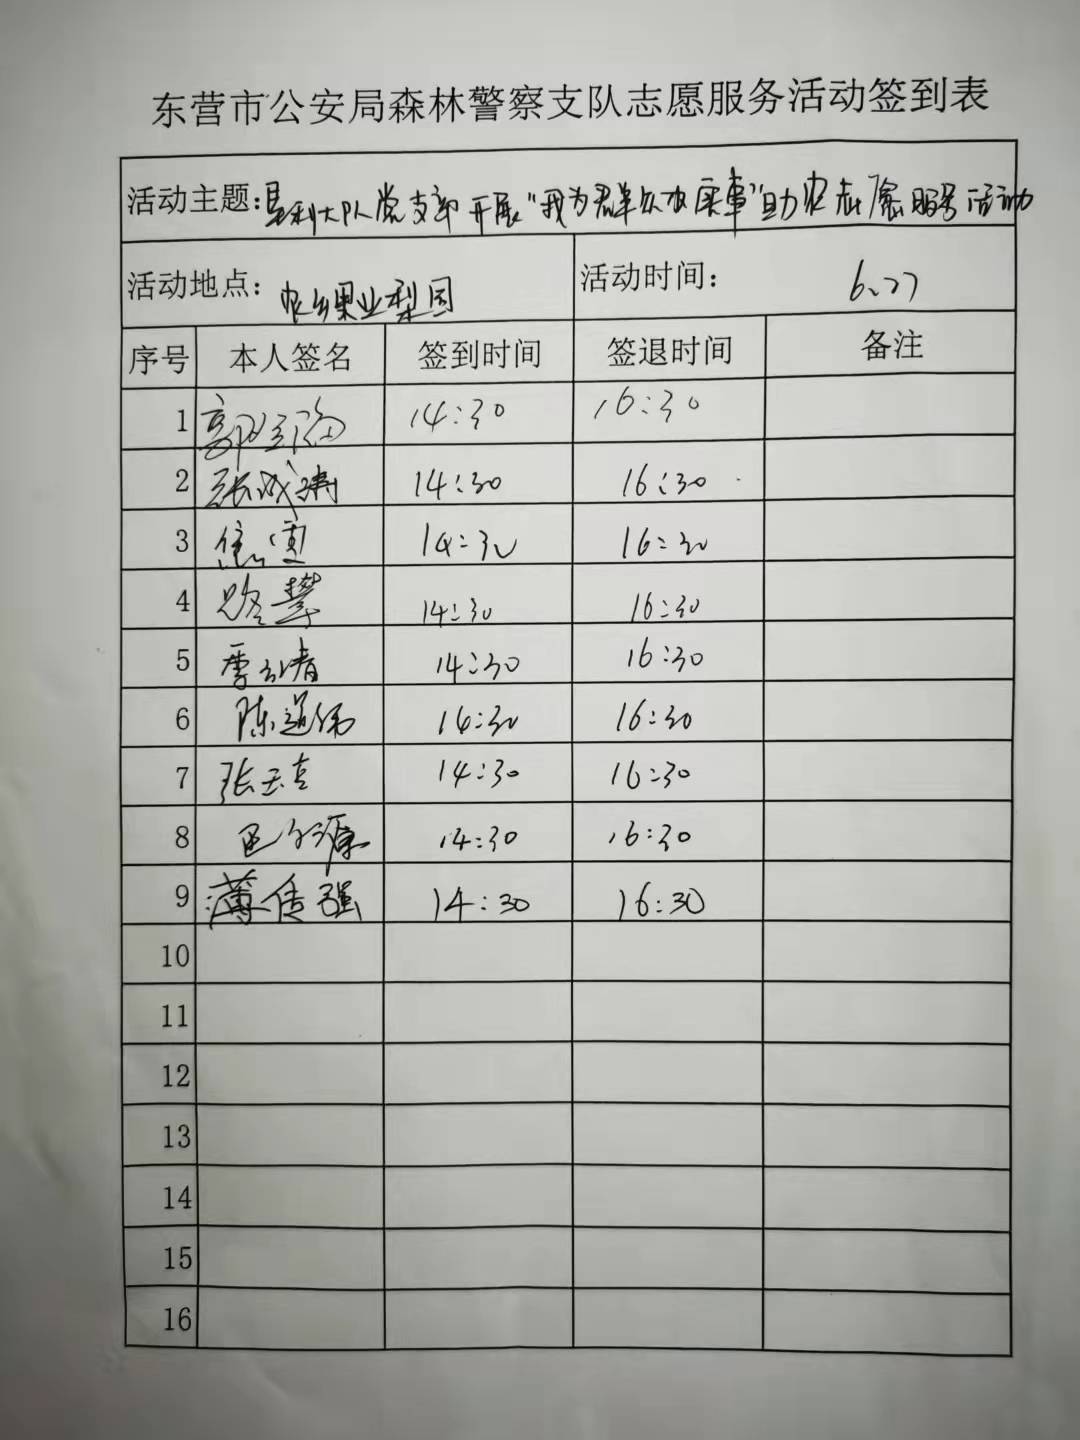 东营市公安局森林警察支队志愿服务活动签到表
活动主题:垦利大队党支部开展“我为群众办实事”助农志愿服务活动
活动地点: 果业梨园 活动时间: 6.27
序号 本人签名 签到时间 签退时间 备注
1 14:30 16:30
2 张成 14:30 16:30
3 14:30 16:30
4 路 14:30 16:30
5 李 14:30 16:30
6 陈道伟 14:30 16:30
7 张玉 14:30 16:30
8 14:30 16:30
9 薄传强 14:30 16:30
10
11
12
13
14
15
16